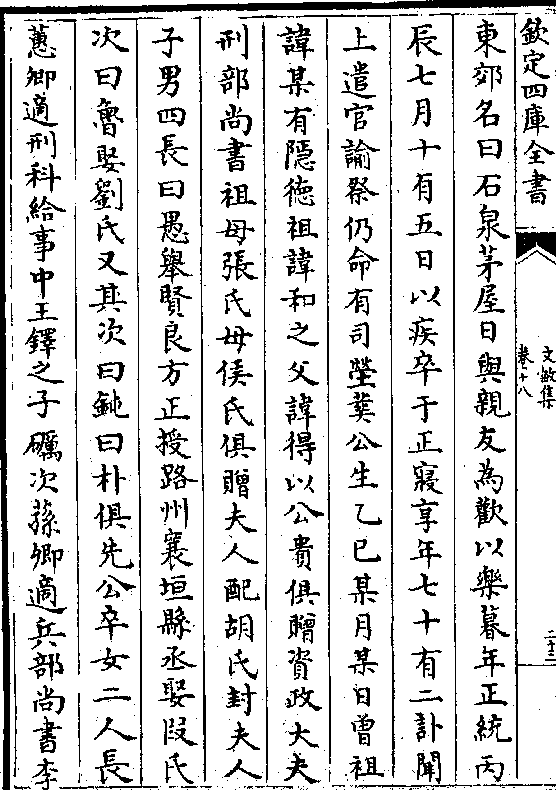 欽定四庫全書
文敏集
卷十八
二十三
東郊名曰石泉茅屋日與親友為歡以樂暮年正統丙
辰七月十有五日以疾卒于正寢享年七十有二訃聞
上遣官諭祭仍命有司塋葬公生乙巳某月某日曾祖
諱某有隱德祖諱和之父諱得以公貴俱贈資政大夫
刑部尚書祖母張氏母侯氏俱贈夫人配胡氏封夫人
子男四長曰愚舉賢良方正授路州襄垣縣丞娶叚氏
次曰魯娶劉氏又其次曰鈍曰朴俱先公卒女二人長
蕙卿適刑科給事中王鐸之子礪次蓀卿適兵部尚書李